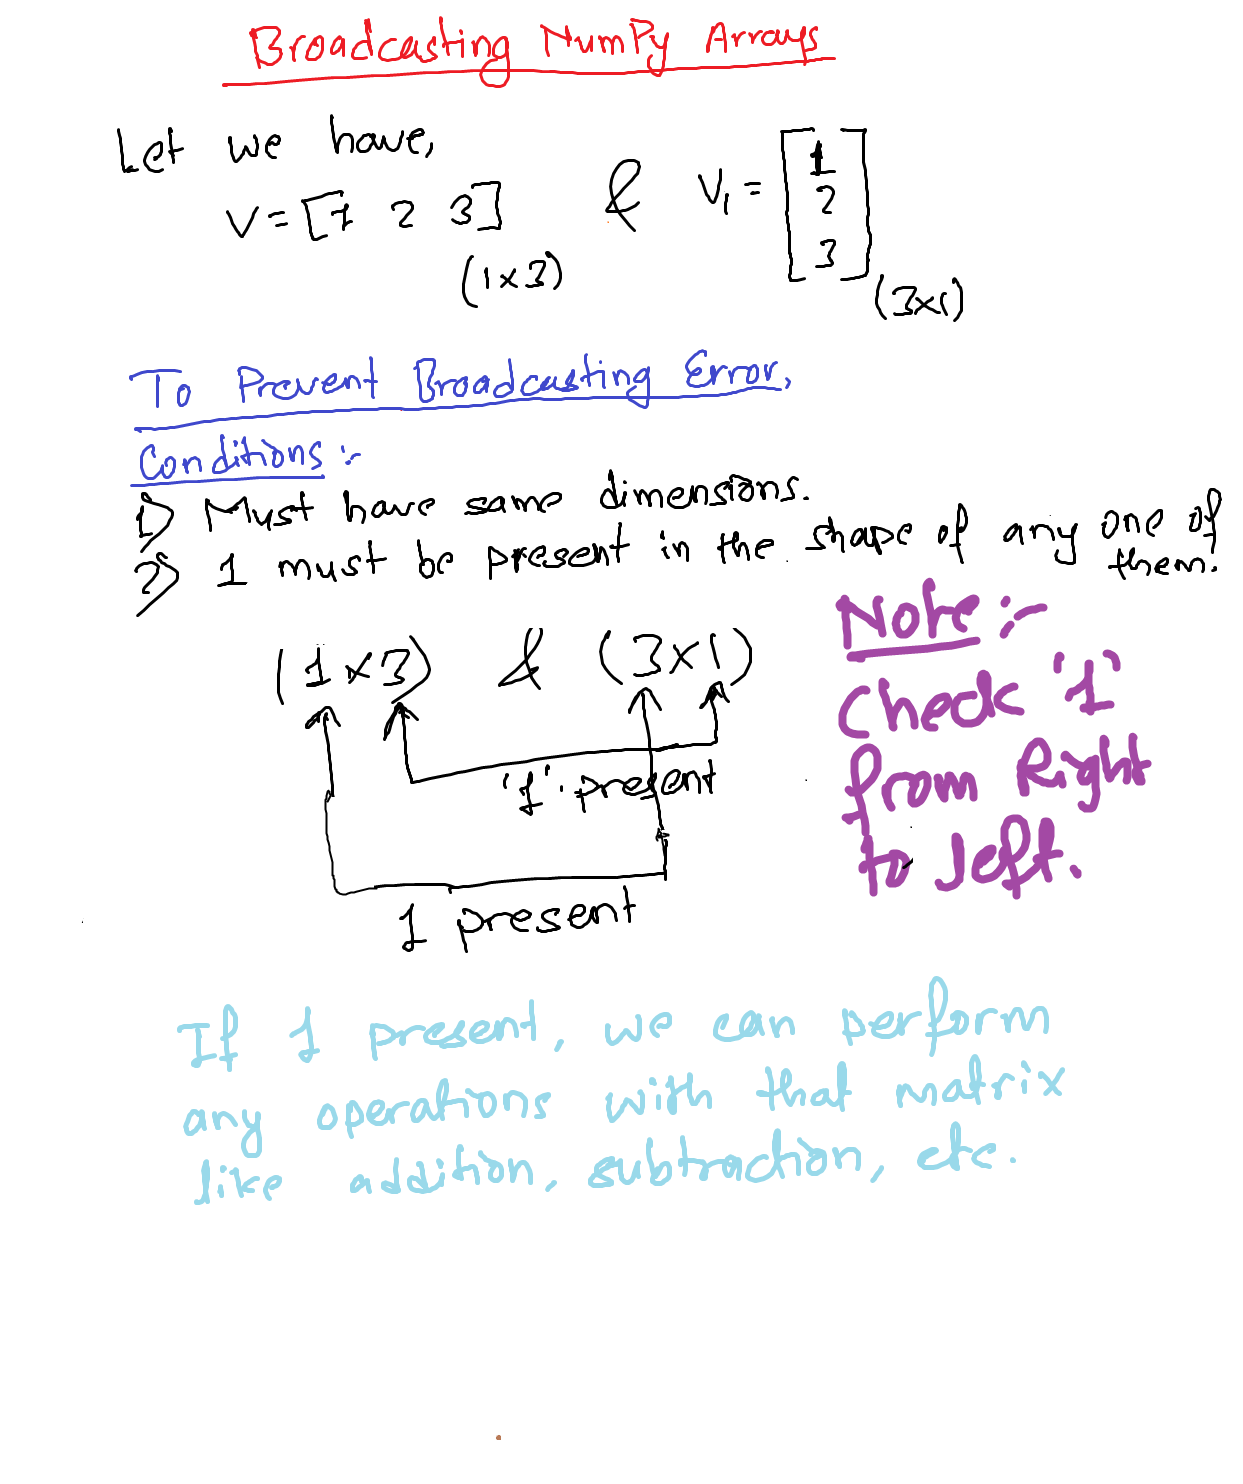 Broadcasting NumPy Arrays
Let we have,
V = [1 2 3] & V₁ = [1 2 3]
(1×3) (3×1)
To Prevent Broadcasting Error,
Conditions :-
1) Must have same dimensions.
2) 1 must be present in the shape of any one of them.
(1×3) & (3×1)
'1' present
1 present
Note :-
Check '1'
from Right
to left.
If 1 present, we can perform
any operations with that matrix
like addition, subtraction, etc.